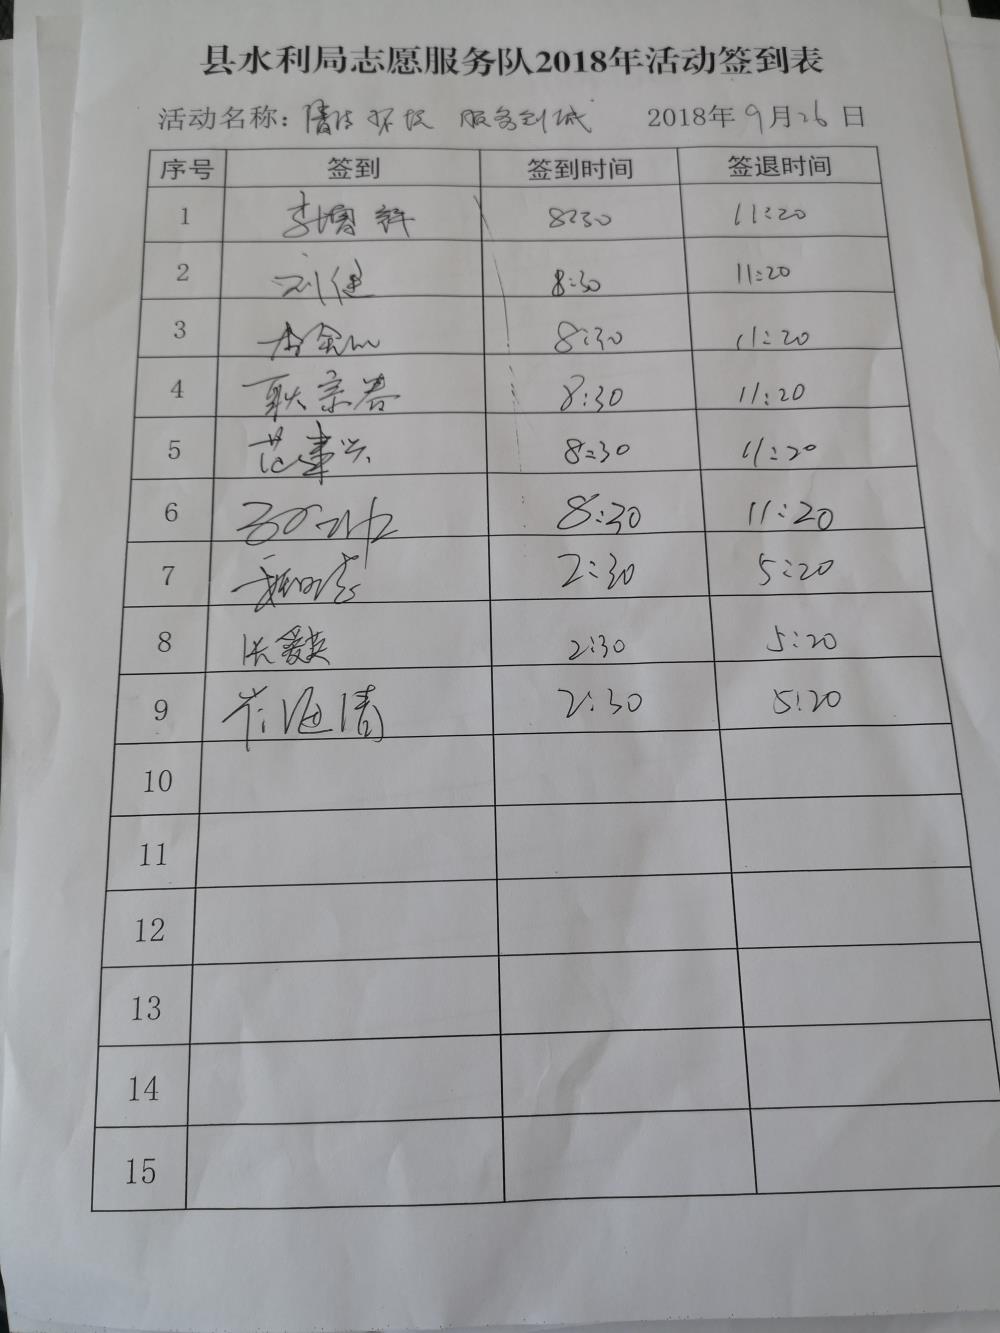 县水利局志愿服务队2018年活动签到表
活动名称: 清洁环境 服务到城 2018年9月26日
序号 签到 签到时间 签退时间
1 李增辉 8:30 11:20
2 刘健 8:30 11:20
3 8:30 11:20
4 耿宗春 8:30 11:20
5 范建兴 8:30 11:20
6 8:30 11:20
7 2:30 5:20
8 张爱英 2:30 5:20
9 崔海清 2:30 5:20
10
11
12
13
14
15